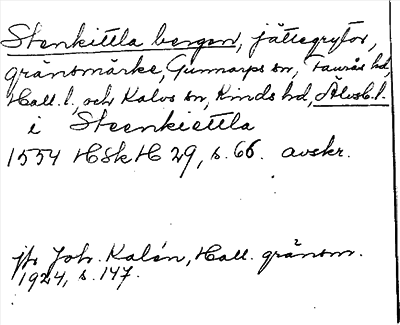 Stenkittla bergen, jättegrytor,
gränsmärke, Gunnarps sn, Faurås hd,
Hall. l. och Kalvs sn, Kinds hd, Älvsb. l.
i Steenkiettla
1554 HSkH 29, s. 66. avskr.
jfr Joh. Kalén, Hall. gränsm.
1924, s. 147.